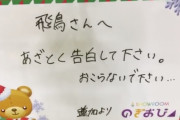 飛鳥さんへ
あざとく告白して下さい。
おこらないで下さい…
蓮加より
SHOWROOM
のぎおび